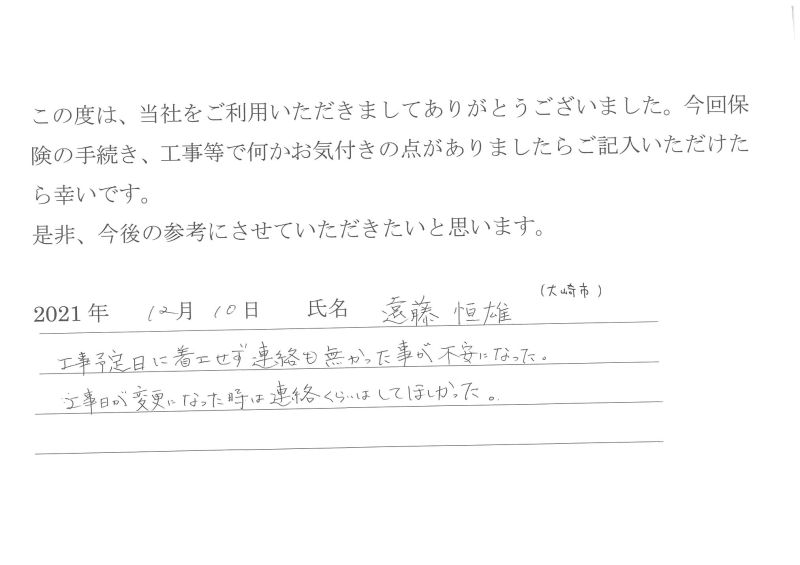 この度は、当社をご利用いただきましてありがとうございました。今回保
険の手続き、工事等で何かお気付きの点がありましたらご記入いただけた
ら幸いです。
是非、今後の参考にさせていただきたいと思います。
(大崎市)
2021年 12月 10日 氏名 遠藤 恒雄
工事予定日に着工せず連絡も無かった事が不安になった。
工事日が変更になった時は連絡くらいはしてほしかった。